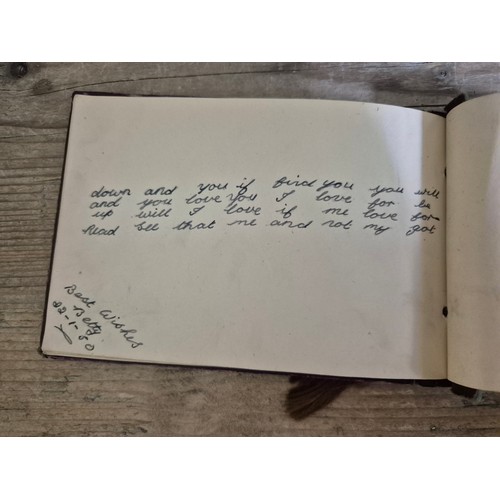 down and you if find you you will
and you love you I love for be
up will I love if me love for
Read see that me and not my got
Best Wishes
Betty
22-1-50